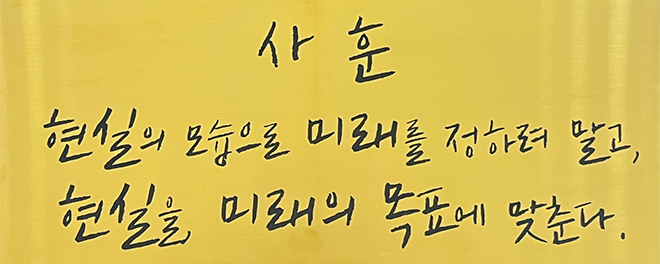 사 훈
현실의 모습으로 미래를 정하려 말고,
현실을 미래의 목표에 맞춘다.